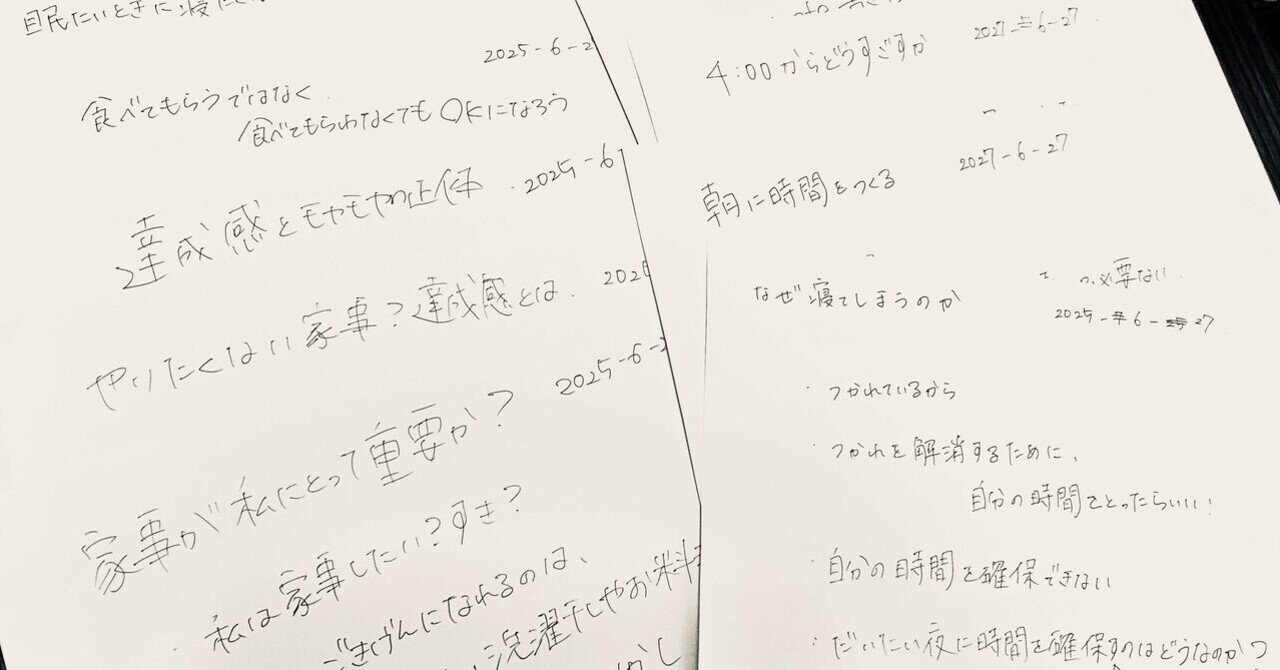 眠たいときに寝
2025-6-2
食べてもらうではなく
食べてもらわなくてもOKになろう
達成感とモヤモヤの正体 2025-6
やりたくない家事?達成感とは 202
家事が私にとって重要か? 2025-6-2
・私は家事したい?すき?
ごきげんになれるのは、
洗濯干しやお料
2027-6-27
4:00からどうすごすか
2027-6-27
朝に時間をつくる
なぜ寝てしまうのか
必要ない
2025-6-27
・つかれているから
・つかれを解消するために、
自分の時間をとったらいい!
・自分の時間を確保できない
・だいたい夜に時間を確保すのはどうなのかつ